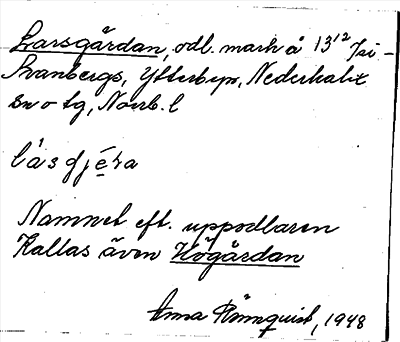 Larsgårdan, odl. mark å 13¹² Isi-
Svanbergs, Ytterbyn, Nederkalix
sn o tg, Norrb. l
lásgjéra
Namnet eft. uppodlaren
Kallas även Högårdan
Anna Rönnquist, 1948